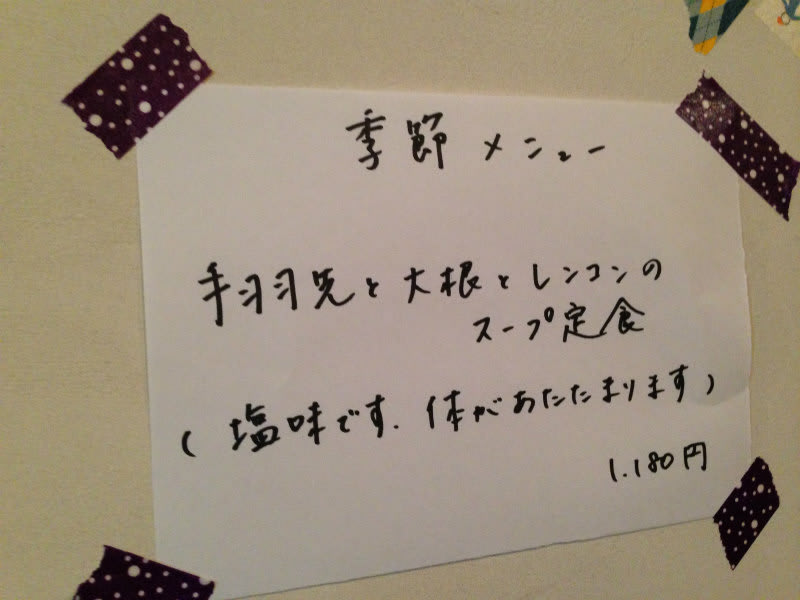 季節メニュー
手羽先と大根とレンコンの
スープ定食
(塩味です. 体があたたまります)
1.180円